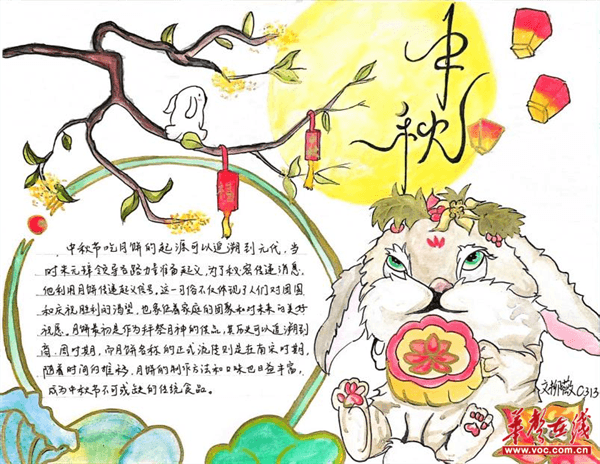 中秋
中秋节吃月饼的起源可以追溯到元代，当
时朱元璋领导各路力量准备起义，为了秘密传递消息，
他利用月饼传递起义信号。这一习俗不仅体现了人们对团圆
和庆祝胜利的渴望，也象征着家庭的团聚和对未来的美好
祝愿。月饼最初是作为拜祭月神的供品，其历史可以追溯到
商、周时期，而月饼名称的正式流传则是在南宋时期。
随着时间的推移，月饼的制作方法和口味也日益丰富，
成为中秋节不可或缺的传统食品。
C313
华声在线
www.voc.com.cn